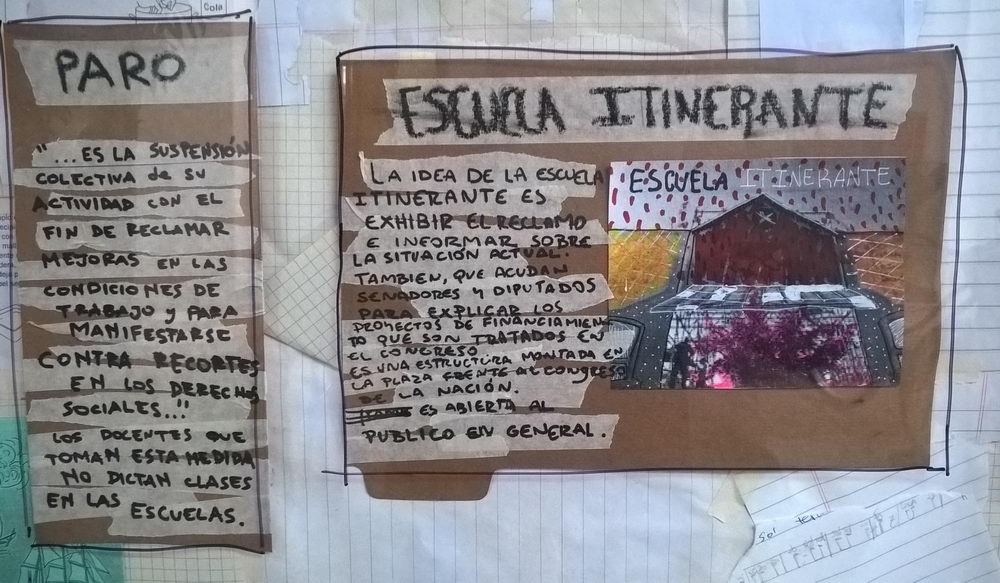 Cola
PARO
"...ES LA SUSPENSIÓN
COLECTIVA de SU
ACTIVIDAD CON EL
FIN DE RECLAMAR
MEJORAS EN LAS
CONDICIONES DE
TRABAJO y PARA
MANIFESTARSE
CONTRA RECORTES
EN LOS DERECHOS
SOCIALES..."
LOS DOCENTES QUE
TOMAN ESTA MEDIDA
NO DICTAN CLASES
EN LAS
ESCUELAS.
ESCUELA ITINERANTE
LA IDEA DE LA ESCUELA
ITINERANTE ES
EXHIBIR EL RECLAMO
E INFORMAR SOBRE
LA SITUACIÓN ACTUAL.
TAMBIEN, QUE ACUDAN
SENADORES Y DIPUTADOS
PARA EXPLICAR LOS
PROYECTOS DE FINANCIAMIEN
TO QUE SON TRATADOS EN
EL CONGRESO
ES UNA ESTRUCTURA MONTADA EN
LA PLAZA FRENTE AL CONGRESO
DE LA NACIÓN.
ES ABIERTA AL
PUBLICO EN GENERAL.
ESCUELA ITINERANTE